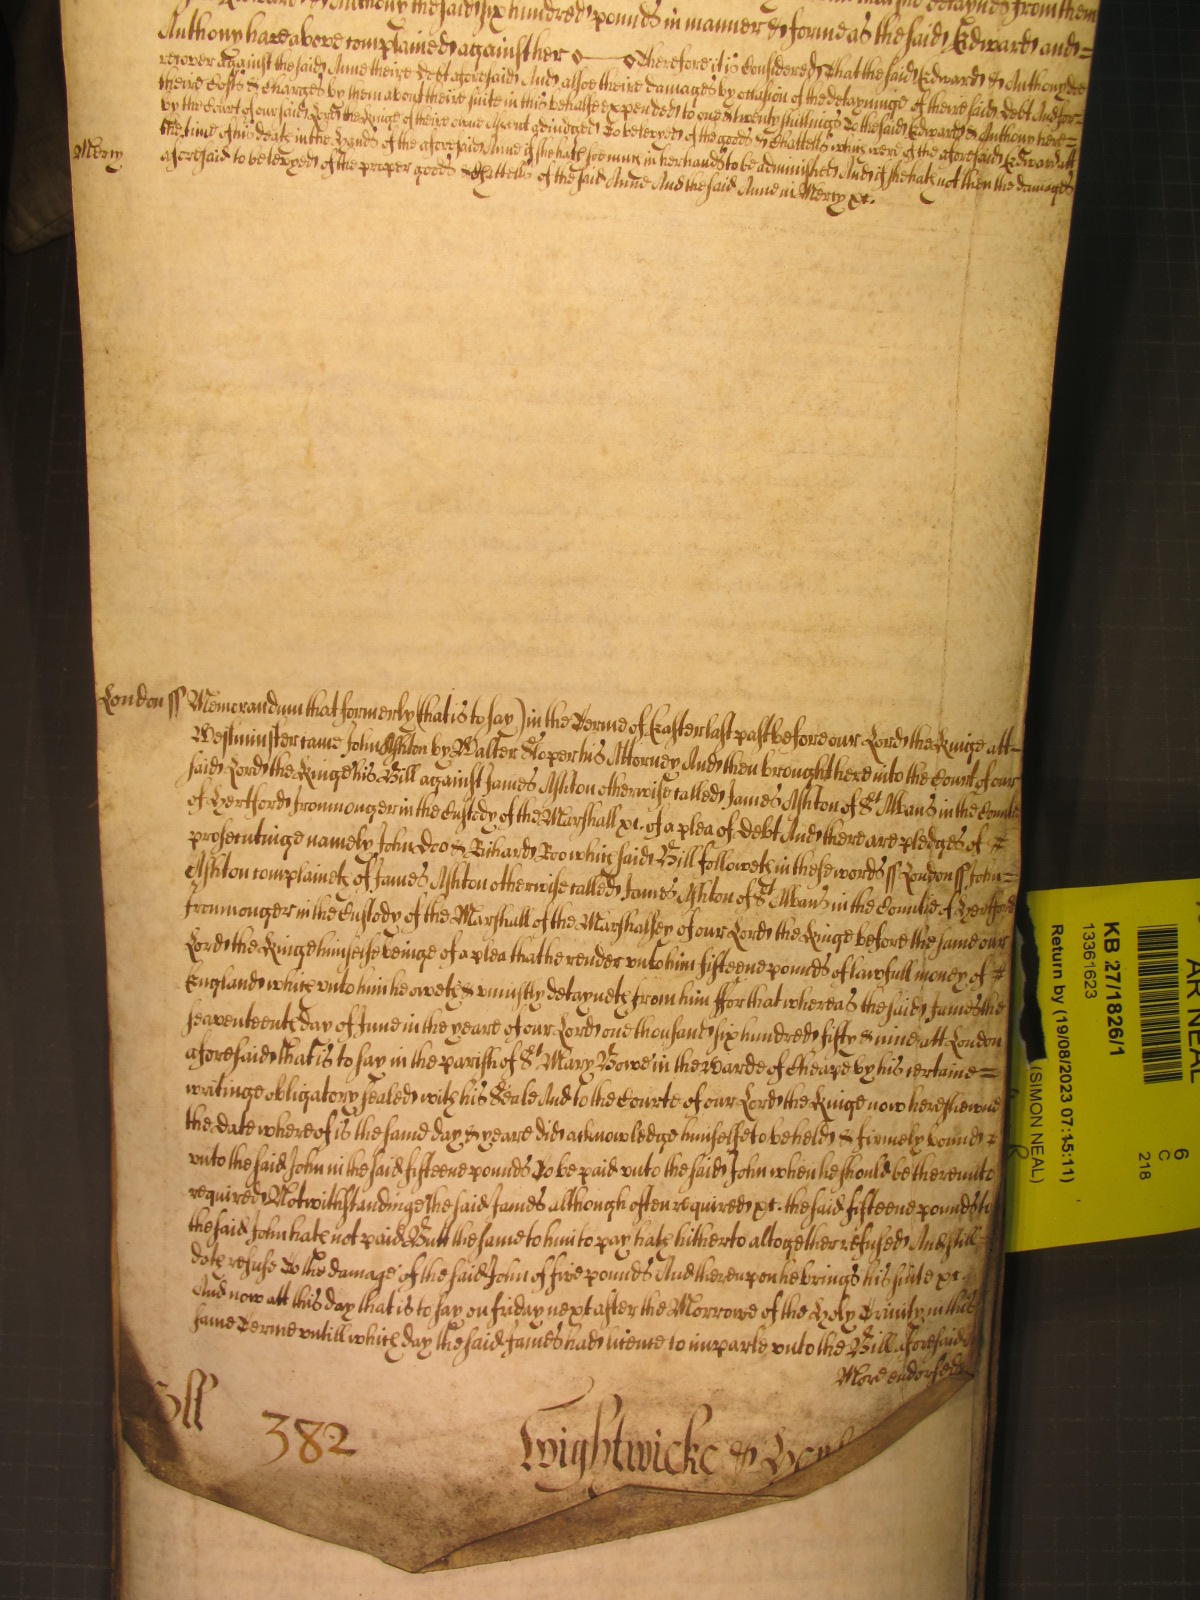 Anthony the said six hundred pounds in manner & forme as the said Edward and =
Anthony have above complained against her Therefore it is Considered That the said Edward & Anthony do
recover against the said Anne theire Debt aforesaid And alsoe theire damages by occasion of the detayninge of theire said Debt And for
theire Costs & Charges by them about theire suite in this behalfe expended to one & twenty shillings To the said Edward & Anthony here =
by the Court of our said Lord the Kinge of theire owne Assent adiudged To be levyed of the goods & Chattells which were of the aforesaid Edward att
the time of his death in the hands of the aforesaid Anne if she hath soe much in her hands to be administred And if she hath not then the damages
Mercy
aforesaid to be levyed of the proper goods & Chattells of the said Anne And the said Anne in Mercy &c.
London ss Memorandum that formerly (that is to say) in the Terme of Easter last past before our Lord the Kinge att =
Westminster came John Ashton by Walter Sloper his Attorney And then brought here into the Court of our
said Lord the Kinge his Bill against James Ashton otherwise called James Ashton of St Albans in the Countie
of Hertford Ironmonger in the Custody of the Marshall &c. of a plea of Debt And there are pledges of
prosecutinge namely John Doo & Richard Roo which said Bill followeth in these words ss London ss John =
Ashton complaineth of James Ashton otherwise called James Ashton of St Albans in the Countie of Hertford
Ironmonger in the Custody of the Marshall of the Marshalsey of our Lord the Kinge before the same our
Lord the Kinge himselfe beinge of a plea that he render unto him fifteene pounds of lawfull money of
England which unto him he oweth & uniustly detayneth from him ffor that whereas the said James the
seaventeenth day of June in the yeare of our Lord one thousand six hundred fifty & nine att London
aforesaid that is to say in the parish of St Mary Bowe in the warde of Cheape by his certaine =
writinge obligatory sealed with his Seale And to the Courte of our Lord the Kinge now here shewne
the date whereof is the same day & yeare did acknowledge himselfe to be held & firmely bound
unto the said John in the said fifteene pounds To be paid unto the said John when he should be thereunto
required Notwithstandinge the said James although often required &c. the said fifteene pounds to
the said John hath not paid Butt the same to him to pay hath hitherto altogether refused And still =
doth refuse To the damage of the said John of five pounds And thereupon he brings his suite &c.
And now att this day that is to say on Friday next after the Morrowe of the Holy Trinity in this
same Terme untill which day the said James had licence to imparle unto the Bill aforesaid
More endorsed
382
Wightwicke &
KB 27/1826/1
13361623
Return by (19/08/2023 07:15:11)
(SIMON NEAL)
AR NEAL
6
C
218